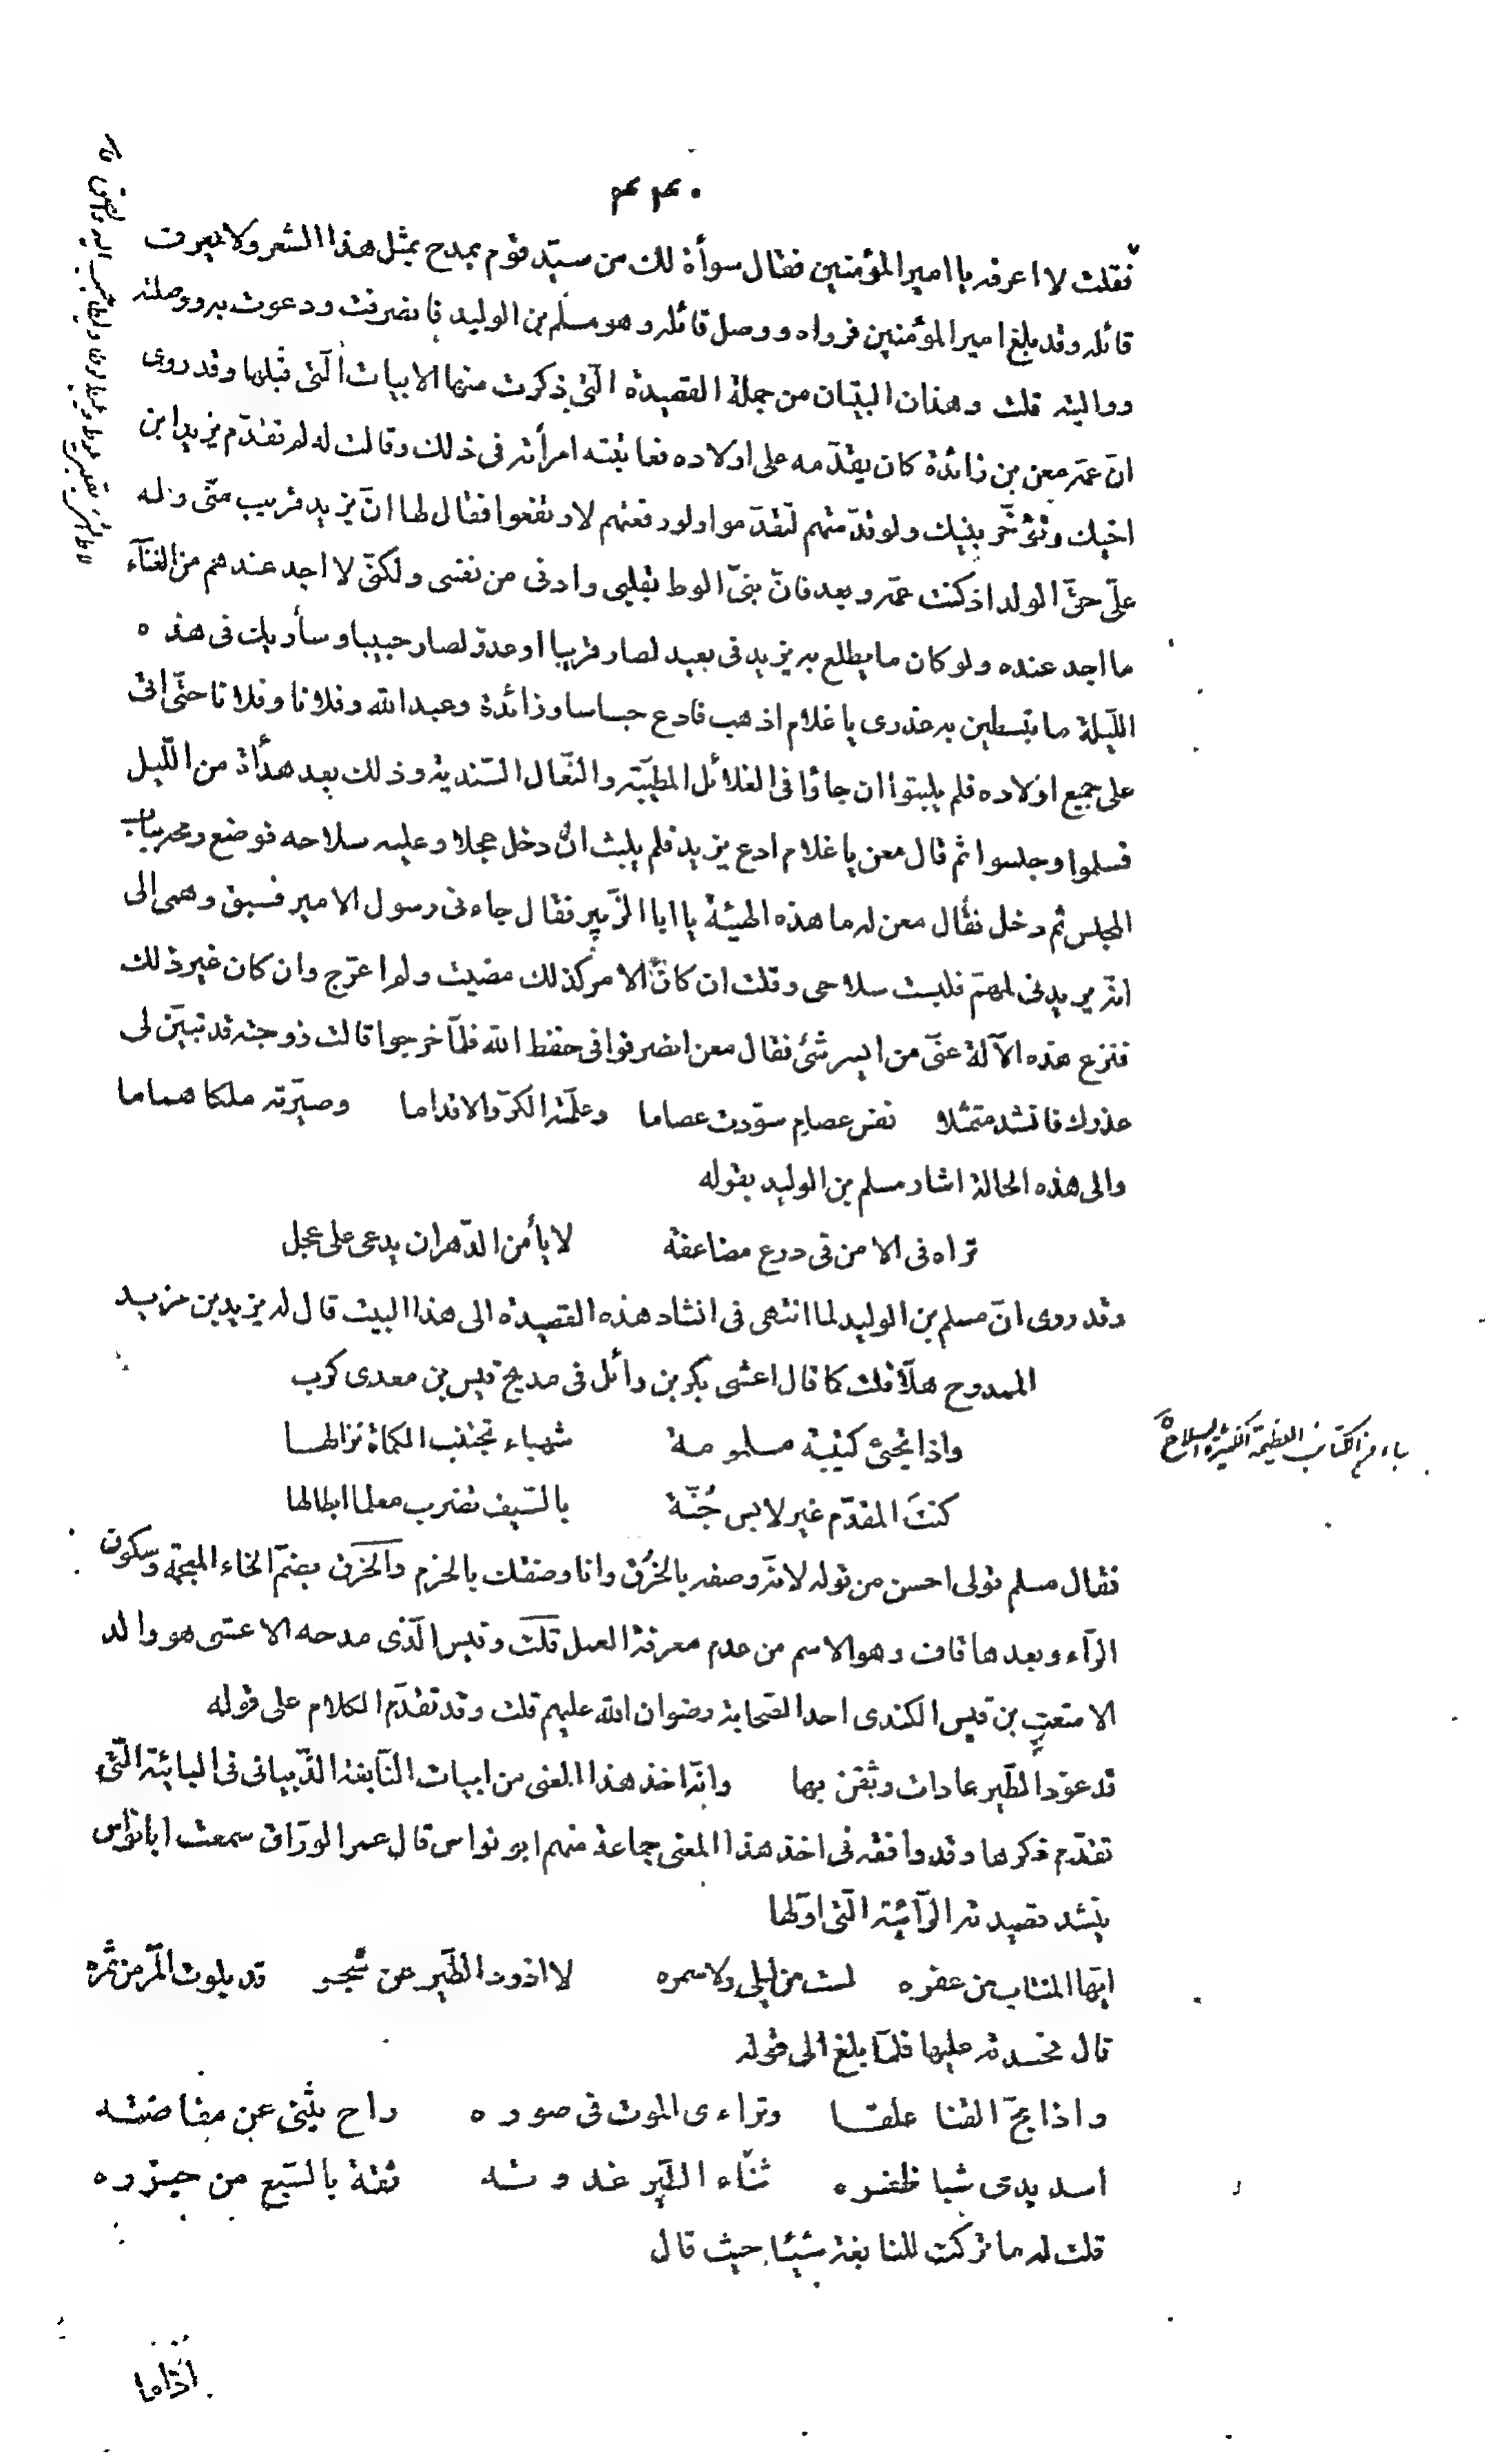 ٣٣٠
فقلت لا اعرفه يا امير المؤمنين فقال سوأة لك من سيّد قوم يمدح بمثل هذا الشعر ولا يعرف
قائله وقد بلغ امير المؤمنين فرواه ووصل قائله وهو مسلم بن الوليد فانصرفت ودعوت به ووصلته
وواليته قلت وهذان البيتان من جملة القصيدة الّتى ذكرت منها الابيات الّتى قبلها وقد روى
انّ عمّه معن بن زائدة كان يقدّمه على اولاده فعاتبته امرأته فى ذلك وقالت له لم تقدّم يزيد ابن
اخيك وتؤخّر بنيك ولو قدّمتهم لتقدّموا ولو رفعتهم لارتفعوا فقال لها انّ يزيد قريب منّى وله
علىّ حقّ الولد اذ كنت عمّه وبعد فانّ بنىّ الوط بقلبى وادنى من نفسى ولكنّى لا اجد عندهم من الغنآء
ما اجد عنده ولو كان ما يطلع به يزيد فى بعيد لصار قريبا او عدوّ لصار حبيبا وسأريك فى هذه
اللّيلة ما تبسطين به عذرى يا غلام اذهب فادع جساسا وزائدة وعبد الله وفلانا وفلانا حتّى اتى
على جميع اولاده فلم يلبثوا ان جاؤا فى الغلائل المطيّبة والنّعال السّندية وذلك بعد هدأة من اللّيل
فسلموا وجلسوا ثم قال معن يا غلام ادع يزيد فلم يلبث ان دخل عجلا وعليه سلاحه فوضع رمحه بباب
المجلس ثم دخل فقال معن له ما هذه الهيئة يا ابا الزّبير فقال جاءنى رسول الامير فسبق وهمى الى
انّه يريدنى لمهمّ فلبست سلاحى وقلت ان كان الامر كذلك مضيت ولم اعرّج وان كان غير ذلك
فنزع هذه الآلة عنّى من ايسر شئ فقال معن انصرفوا فى حفظ الله فلمّا خرجوا قالت زوجته قد تبيّن لى
عذرك فانشد متمثلا نفس عصام سوّدت عصاما وعلّمته الكرّ والاقداما وصيّرته ملكا هماما
والى هذه الحالة اشار مسلم بن الوليد بقوله
تراه فى الامن فى درع مضاعفة لا يأمن الدّهر ان يدعى على عجل
وقد روى انّ مسلم بن الوليد لما انتهى فى انشاد هذه القصيدة الى هذا البيت قال له يزيد بن مزيد
الممدوح هلّا قلت كما قال اعشى بكر بن وائل فى مديح قيس بن معدى كرب
واذا تجئ كتيبة ملمومة شهباء تجتنب الكماة نزالها
كنتَ المقدّم غير لابس جُنّة بالسّيف تضرب معلما ابطالها
فقال مسلم قولى احسن من قوله لانّه وصفه بالخُرق وانا وصفتك بالحزم والخرق بضمّ الخاء المعجمة وسكون
الرّاء وبعدها قاف وهو الاسم من عدم معرفة العمل قلت وقيس الّذى مدحه الاعشى هو والد
الاشعث بن قيس الكندى احد الصّحابة رضوان الله عليهم قلت وقد تقدّم الكلام على قوله
قد عوّد الطّير عادات وثقن بها وانّه اخذ هذا المعنى من ابيات النّابغة الذّبيانى فى البائيّة الّتى
تقدّم ذكرها وقد وافقه فى اخذ هذا المعنى جماعة منهم ابو نواس قال عمر الورّاق سمعت ابا نواس
ينشد قصيدته الرّائيّة الّتى اوّلها
ايّها المنتاب من عفره لست من ليلى ولا سمره لا اذود الطّير عن شجر قد بلوت المرّ من ثمره
قال فحسدته عليها فلمّا بلغ الى قوله
واذا مجّ القنا علقا وتراءى الموت فى صوره راح يثنى عن مفاضته
اسد يدمى شبا ظفره ثنّاء الطّير غدوته ثقة بالشّبع من جزره
قلت له ما تركت للنابغة شيئا حيث قال
اذا ما